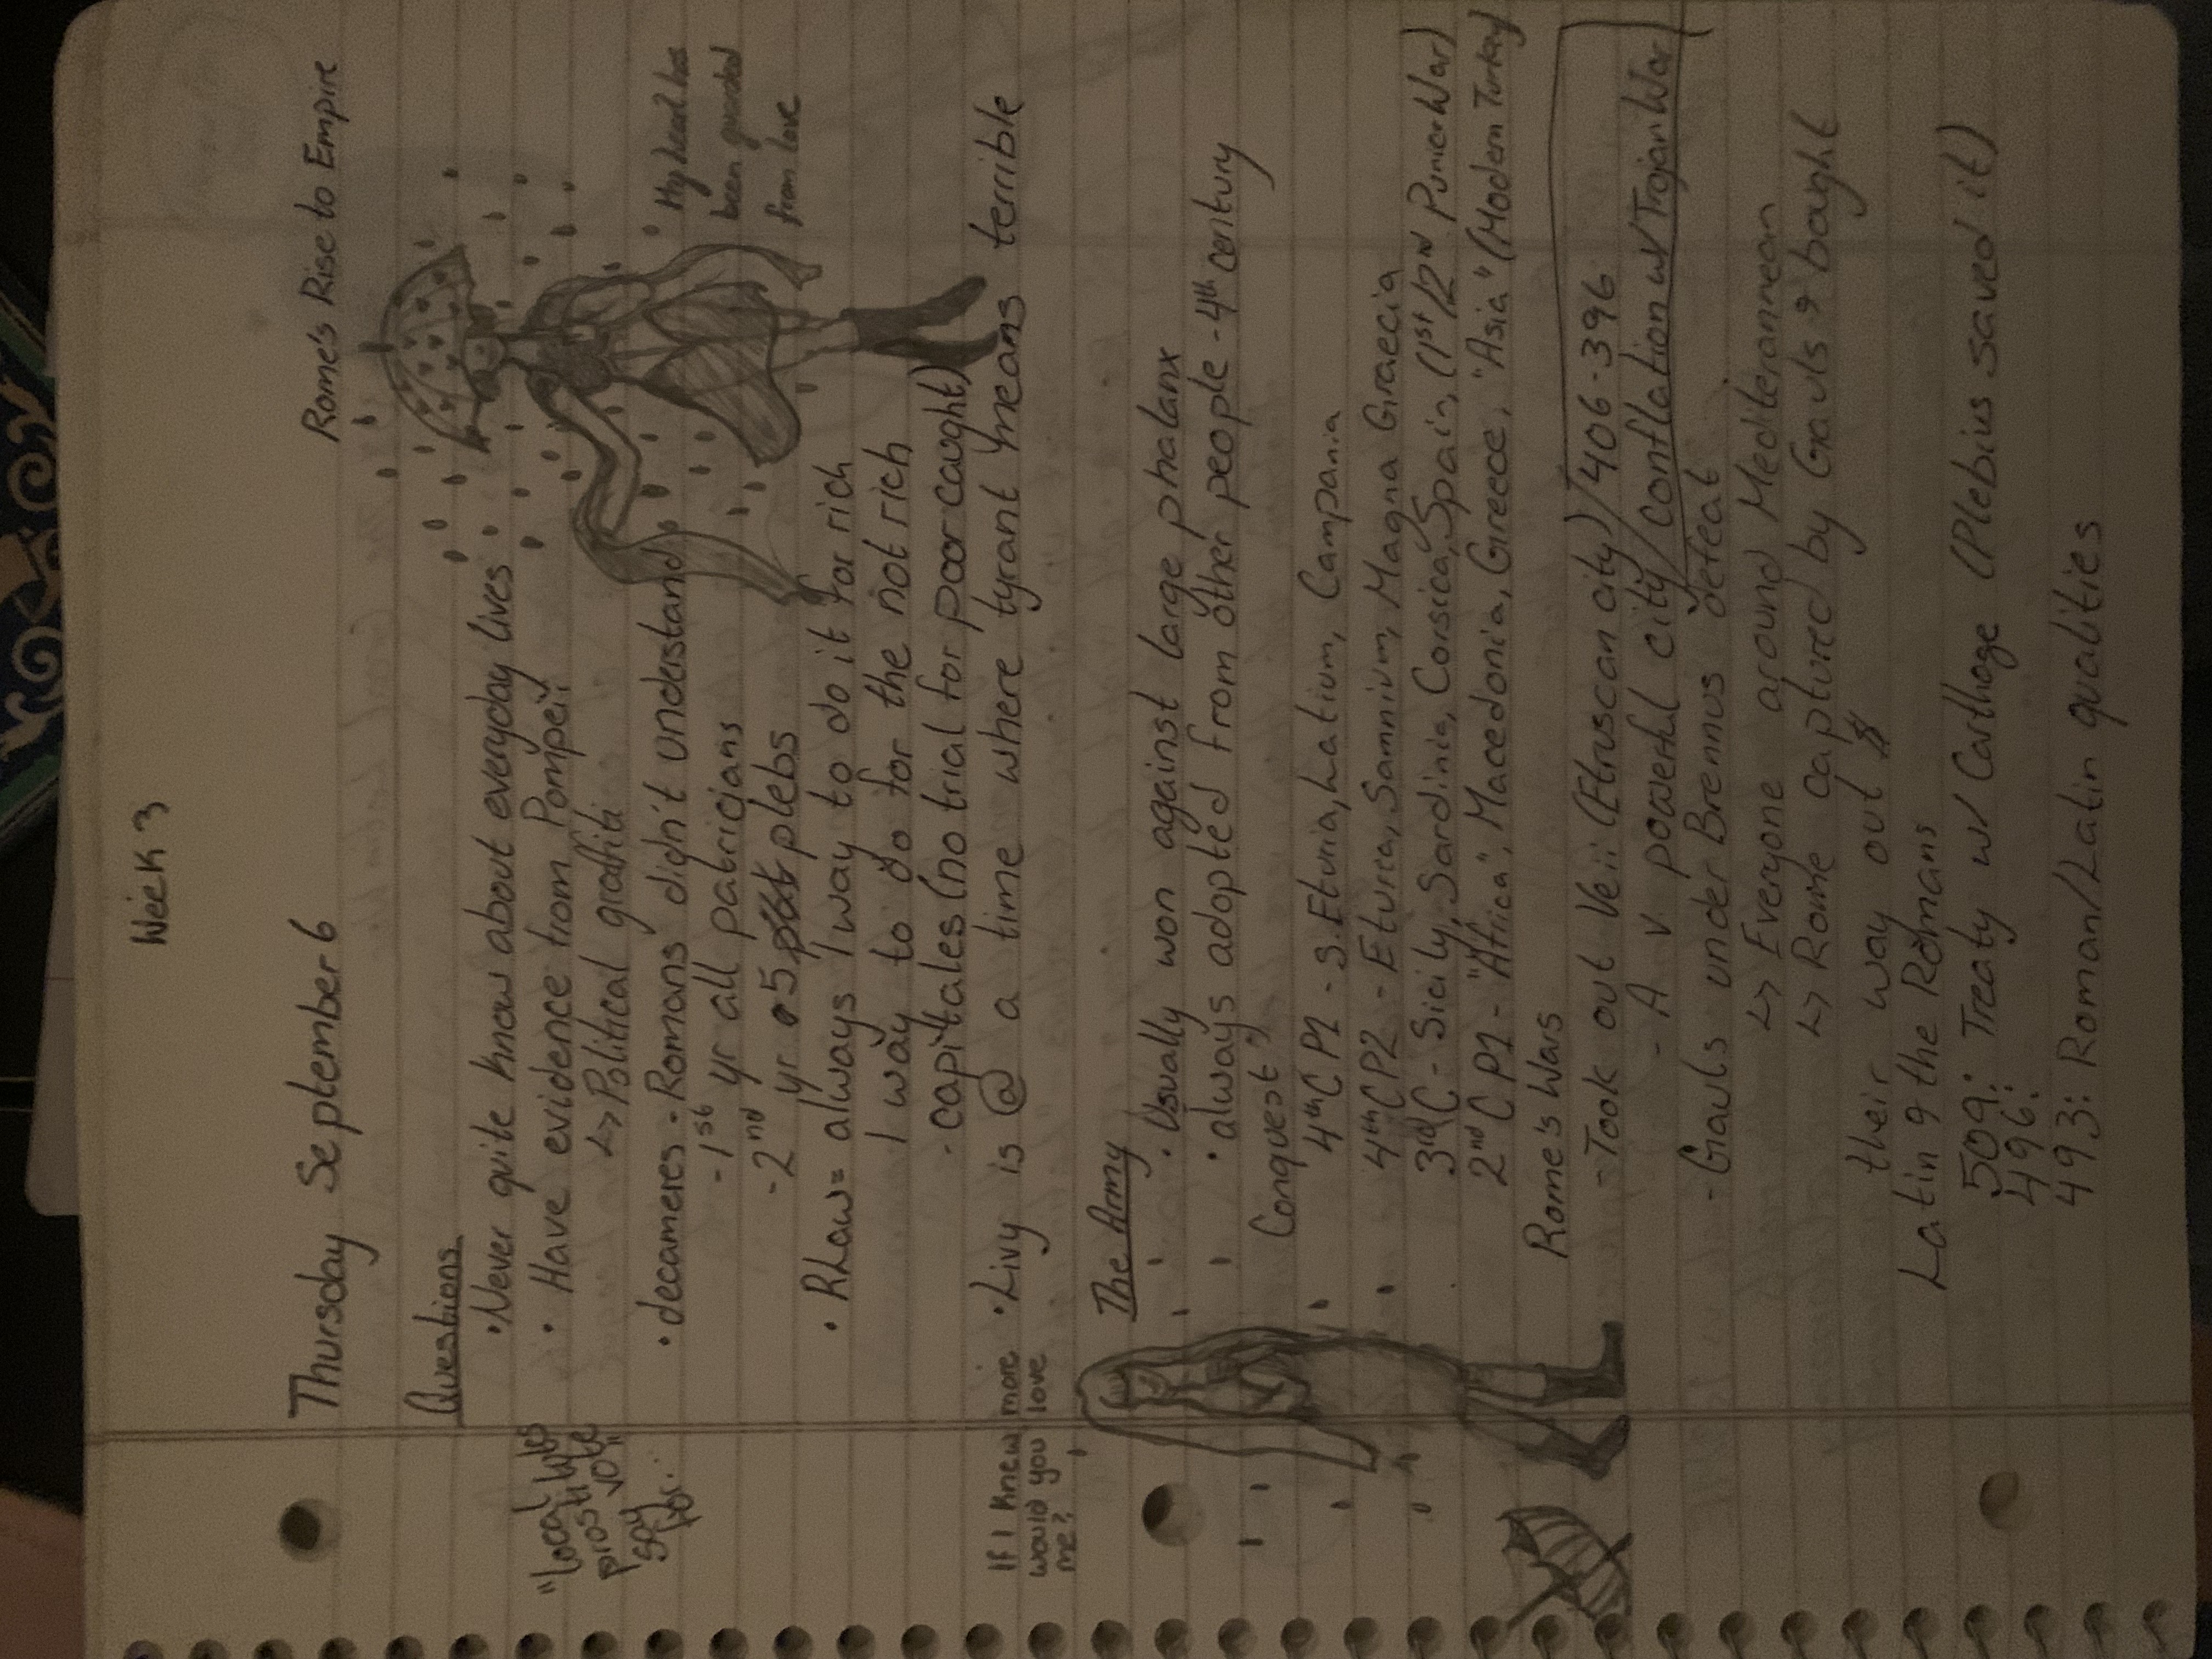 Week 3
Thursday September 6
Rome's Rise to Empire
Questions
•Never quite know about everyday lives
• Have evidence from Pompeii
↳Political graffiti
"local
prostitutes
say vote
for..."
•decameres - Romans didn't understand
-1st yr all patricians
-2nd yr 5 plebs
My heart has
been guarded
from love
• RLaw= always 1 way to do it for rich
1 way to do for the not rich
- capitales (no trial for poor caught)
•Livy is @ a time where tyrant means terrible
If I knew more
would you love
me?
The Army
•Usually won against large phalanx
•always adopted from other people - 4th century
Conquest
4th C P1 - S. Eturia, Latium, Campania
4th C P2 - Eturia, Samnium, Magna Graecia
3rd C - Sicily, Sardinia, Corsica, Spain, (1st/2nd Punic War)
2nd C P1 - "Africa", Macedonia, Greece, "Asia" (Modern Turkey)
Rome's Wars
-Took out Veii (Etruscan city) 406-396
- A v. powerful city conflation w/ Trojan War
-Gauls under Brennus defeat
↳ Everyone around Mediterannean
↳ Rome captured by Gauls & bought
their way out $
Latin & the Romans
509: Treaty w/ Carthage (Plebius saved it)
496:
493: Roman/Latin qualities